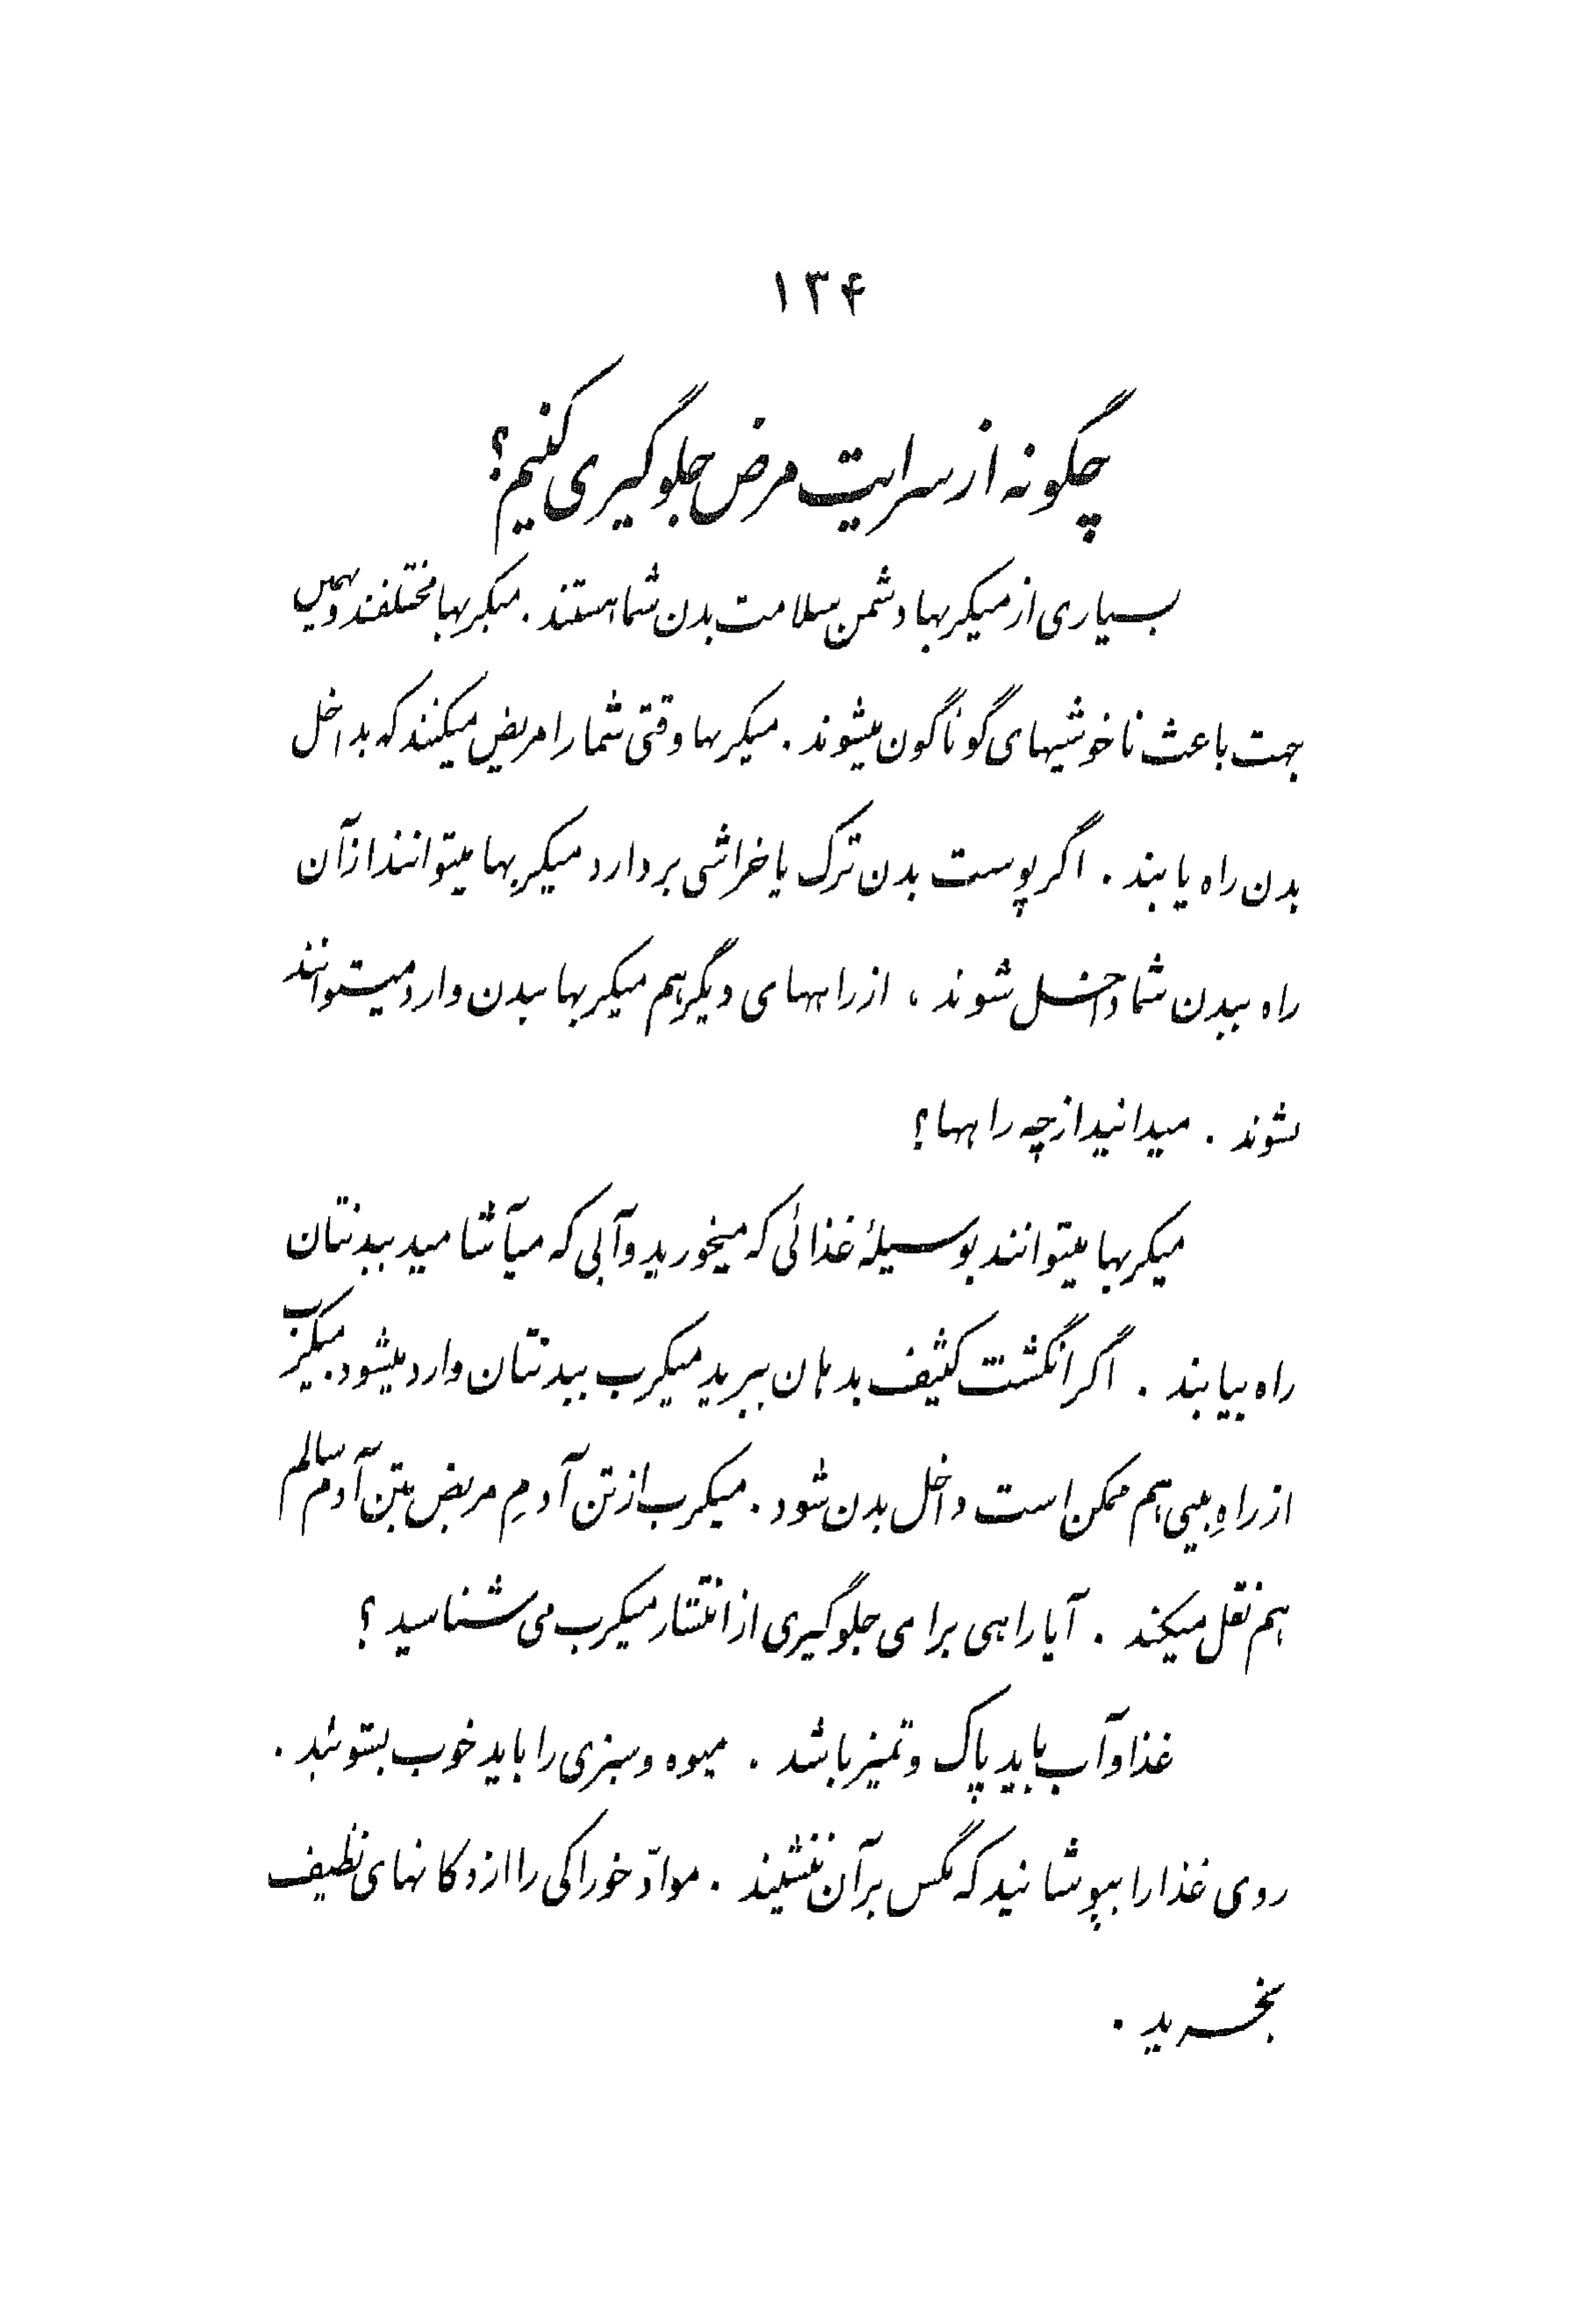 ۱۳۴
چگونه از سرایت مرض جلوگیری کنیم؟
بسیاری از میکربها دشمن سلامت بدن شما هستند . میکربها مختلفند و بهمین
جهت باعث ناخوشیهای گوناگون میشوند . میکربها وقتی شما را مریض میکنند که بداخل
بدن راه یابند . اگر پوست بدن ترک یا خراشی بردارد میکربها میتوانند از آن
راه ببدن شما داخل شوند ، از راههای دیگر هم میکربها ببدن وارد میتوانند
شوند . میدانید از چه راهها ؟
میکربها میتوانند بوسیلهٔ غذائی که میخورید و آبی که میآشامید ببدنتان
راه بیابند . اگر انگشت کثیف بدهان ببرید میکرب ببدنتان وارد میشود . میکرب
از راهِ بینی هم ممکن است داخل بدن شود . میکرب از تن آدمِ مریض بتن آدم سالم
هم نقل میکند . آیا راهی برای جلوگیری از انتشار میکرب می شناسید ؟
غذا و آب باید پاک و تمیز باشد . میوه و سبزی را باید خوب بشوئید .
روی غذا را بپوشانید که مگس بر آن ننشیند . موادّ خوراکی را از دکانهای نظیف
بخرید .